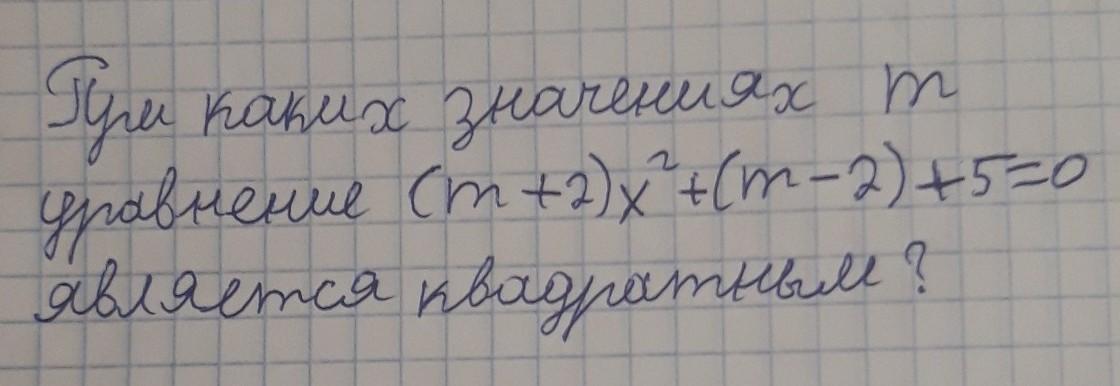 При каких значениях m
уравнение (m+2)x²+(m-2)+5=0
является квадратным?